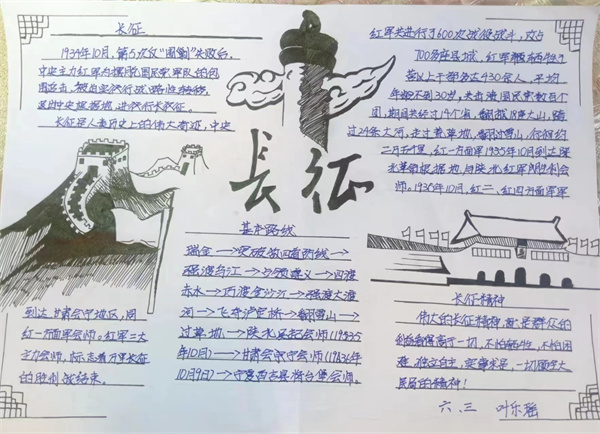 长征
1934年10月，第5次反“围剿”失败后，
中央主力红军为摆脱国民党军队的包
围追击，被迫实行战略性转移，
退出中央根据地，进行长征。
长征是人类历史上的伟大奇迹，中央
红军共进行了600次战役战斗，攻占
700多座县城，红军牺牲了
营以上干部多达430余人，平均
年龄不到30岁，共击溃国民党数百个
团，期间共经过14个省，翻越18座大山，跨
过24条大河，走过草地，翻过雪山，行程约
二万五千里，红一方面军1935年10月到达陕
北革命根据地，与陕北红军胜利会
师。1936年10月，红二、红四方面军
到达甘肃会宁地区，同
红一方面军会师。红军三大
主力会师，标志着万里长征
的胜利结束。
长征
基本路线
瑞金→突破敌四道防线→
强渡乌江→占领遵义→四渡
赤水→巧渡金沙江→强渡大渡
河→飞夺泸定桥→翻雪山→
过草地→陕北吴起会师(1935
年10月)→甘肃会宁会师(1936年
10月9日)→宁夏西吉县将台堡会师。
长征精神
伟大的长征精神，就是群众的
利益看得高于一切，不怕牺牲，不怕困
难，独立自主，实事求是，一切
民族的精神！
六.三 叶乐瑶